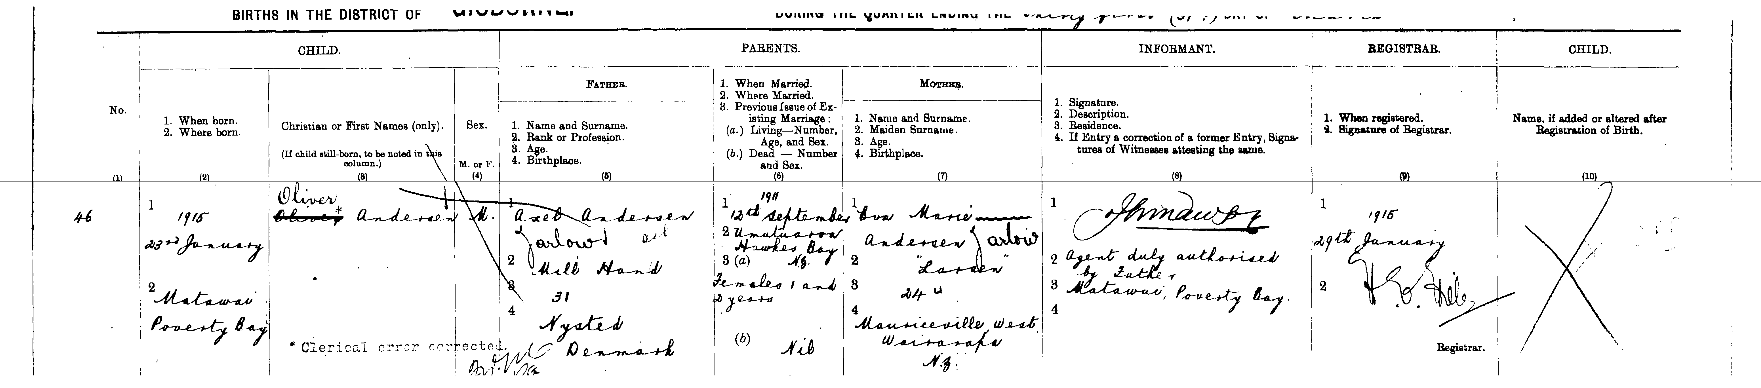 BIRTHS IN THE DISTRICT OF GISBORNE DURING THE QUARTER ENDING THE
CHILD. PARENTS. INFORMANT. REGISTRAR. CHILD.
No.
1. When born.
2. Where born.
Christian or First Names (only).
(If child still-born, to be noted in this
column.)
Sex.
M. or F.
FATHER.
1. Name and Surname.
2. Rank or Profession.
3. Age.
4. Birthplace.
1. When Married.
2. Where Married.
3. Previous Issue of Ex-
isting Marriage:
(a.) Living—Number,
Age, and Sex.
(b.) Dead — Number
and Sex.
MOTHER.
1. Name and Surname.
2. Maiden Surname.
3. Age.
4. Birthplace.
1. Signature.
2. Description.
3. Residence.
4. If Entry a correction of a former Entry, Signa-
tures of Witnesses attesting the same.
1. When registered.
2. Signature of Registrar.
Name, if added or altered after
Registration of Birth.
(1) (2) (3) (4) (5) (6) (7) (8) (9) (10)
46
1
1915
23rd January
2
Matawai
Poverty Bay
Oliver
Oliver* Andersen
* Clerical error corrected.
M.
1
Axel Andersen
2
Mill Hand
3
31
4
Nysted
Denmark
1 1911
12th September
2
Hawkes Bay
3 (a) N.Z.
Females 1 and
2 years
(b)
Nil
1
Eva Marie
Andersen
2
"Larsen"
3
24
4
Mauriceville West
Wairarapa
N.Z.
1
2 Agent duly authorised
by Father
3 Matawai, Poverty Bay.
4
1
1915
29th January
2
Registrar.